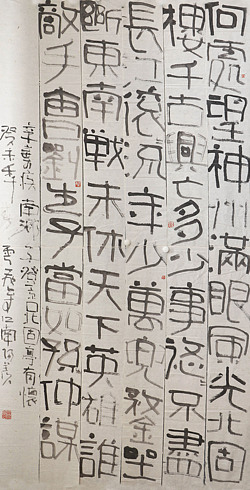 何處望神州滿眼風光北固
樓千古興亡多少事悠不盡
長江滾流年少萬兜鍪坐
斷東南戰未休天下英雄誰
敵手曹劉生子當如孫仲謀
辛棄疾南鄉子登京口北固亭有懷
癸未年